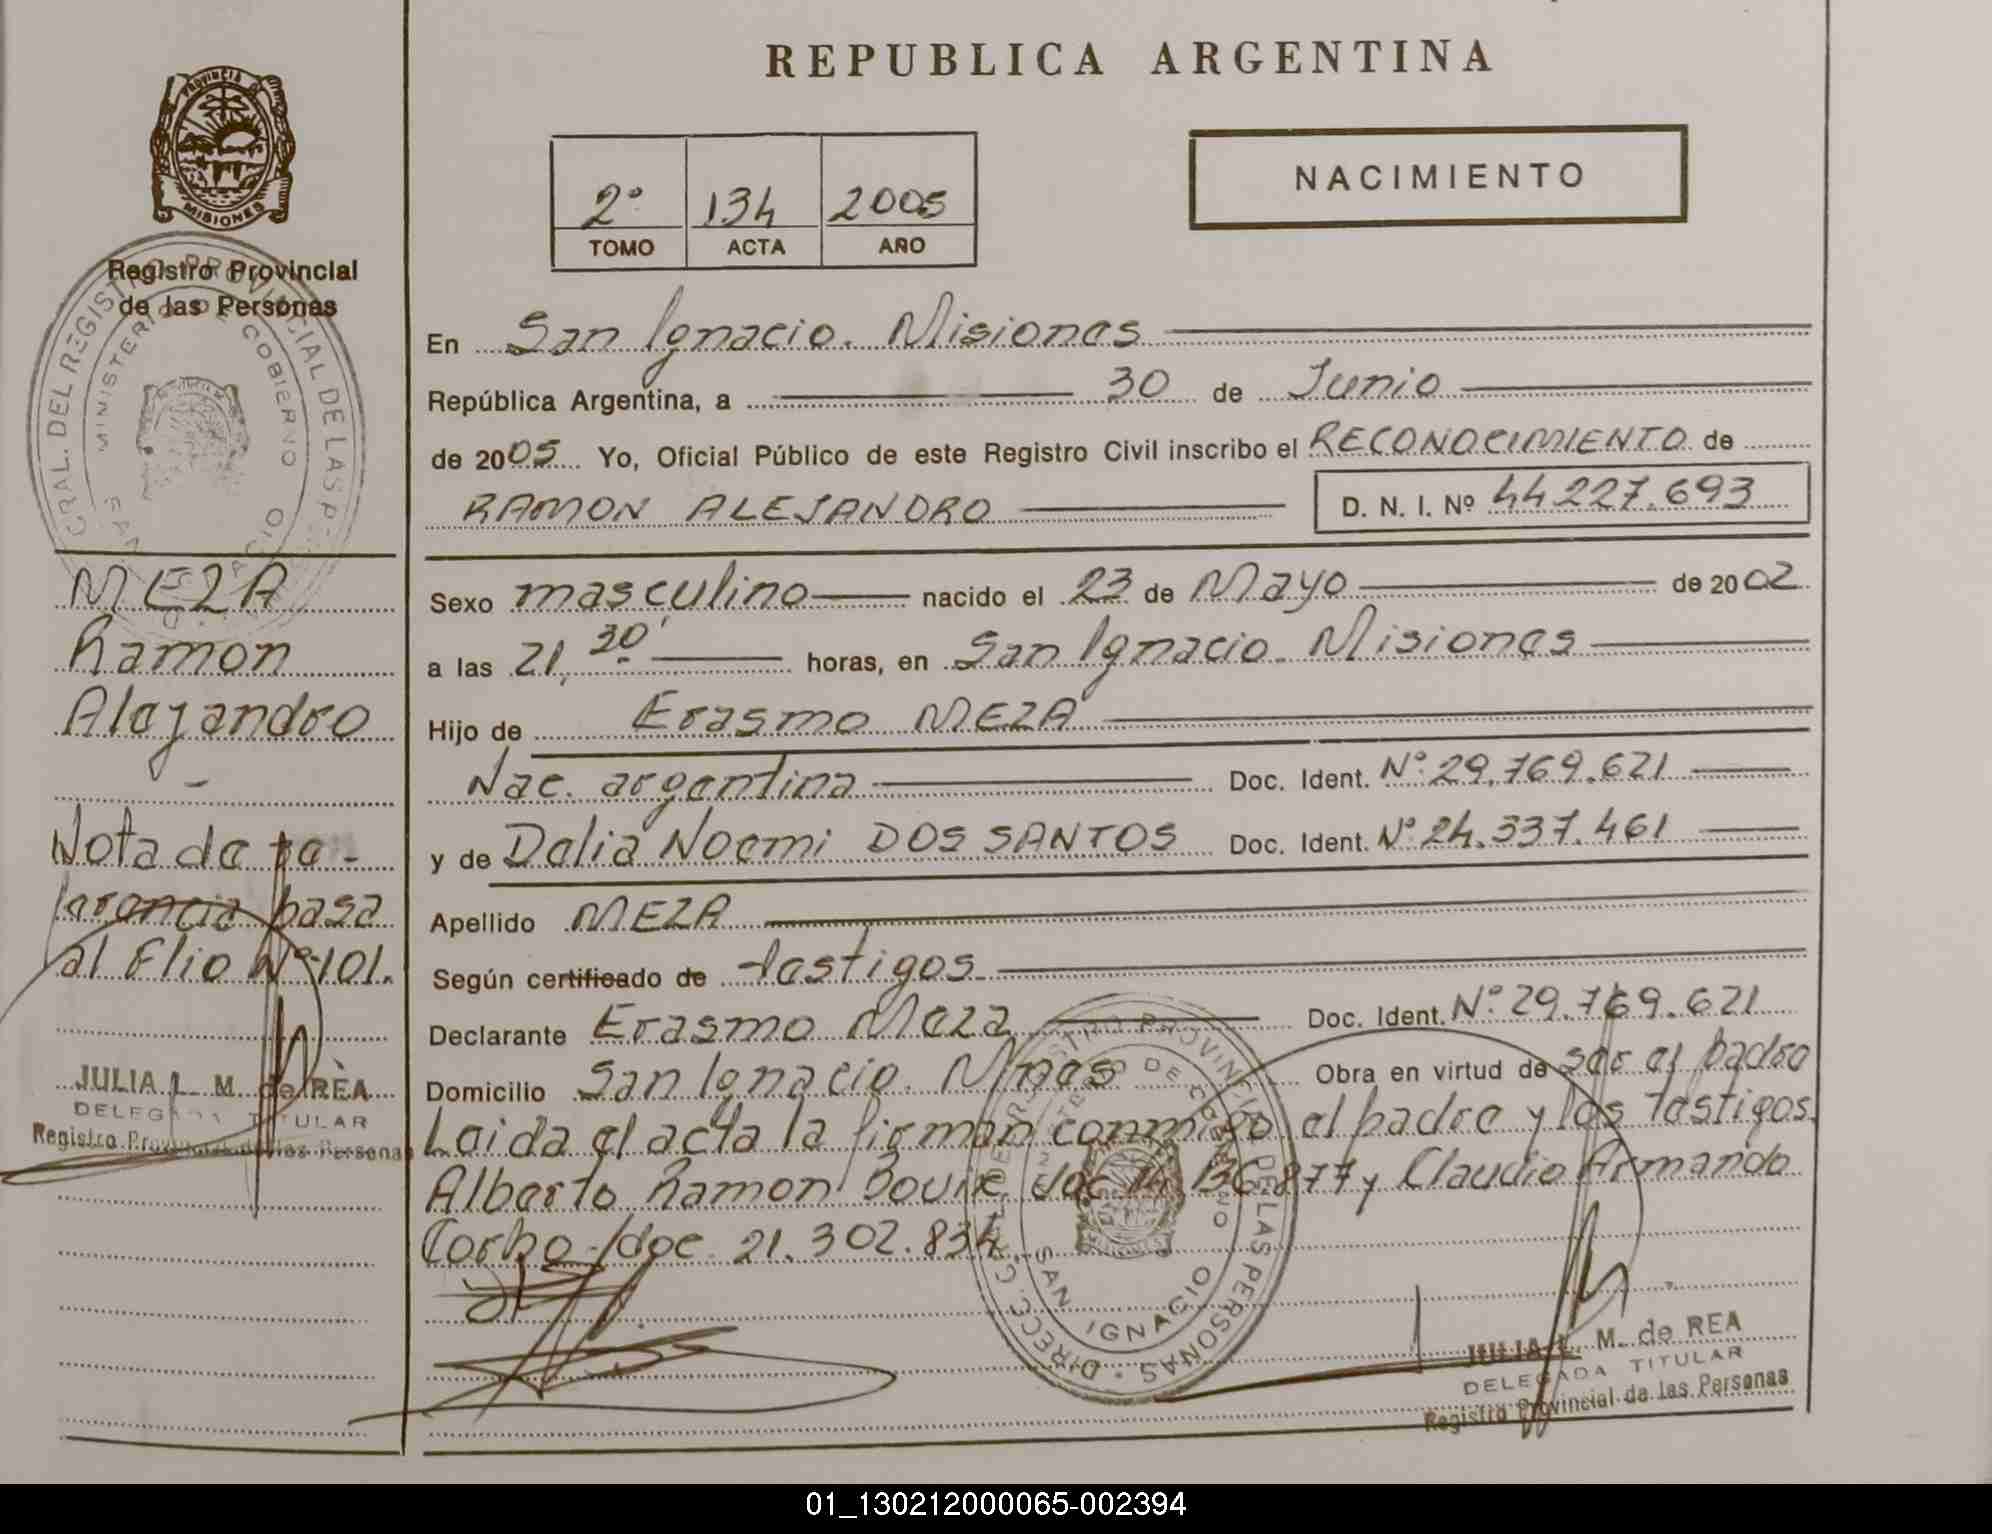 REPUBLICA ARGENTINA
PROVINCIA DE
MISIONES
Registro Provincial
de las Personas
NACIMIENTO
2º 134 2005
TOMO ACTA AÑO
En San Ignacio. Misiones
República Argentina, a 30 de Junio
de 2005 Yo, Oficial Público de este Registro Civil inscribo el RECONOCIMIENTO de
RAMON ALEJANDRO D. N. I. Nº 44227.693
Sexo masculino nacido el 23 de Mayo de 2002
a las 21,30' horas, en San Ignacio. Misiones
Hijo de Erasmo MEZA
Nac. argentina Doc. Ident. Nº 29.769.621
y de Delia Noemi DOS SANTOS Doc. Ident. Nº 24.337.461
Apellido MEZA
Según certificado de testigos
Declarante Erasmo Meza Doc. Ident. Nº 29.769.621
Domicilio San Ignacio. Mnes Obra en virtud de ser el padre
Leida el acta la firman conmigo el padre y los testigos.
Alberto Ramon doc 14.136.877 y Claudio Armando
doc. 21.302.834
JULIA L. M. de REA
DELEGADA TITULAR
Registro Provincial de las Personas
MEZA
Ramon
Alejandro
Nota de re-
ferencia pasa
al Flio Nº 101.
JULIA L. M. de REA
DELEGADA TITULAR
Registro Provincial de las Personas
DIRECC. GRAL. DEL REGISTRO PROVINCIAL DE LAS PERSONAS
MINISTERIO DE GOBIERNO
SAN IGNACIO
DIRECC. GRAL. DEL REGISTRO PROVINCIAL DE LAS PERSONAS
MINISTERIO DE GOBIERNO
SAN IGNACIO
01_130212000065-002394